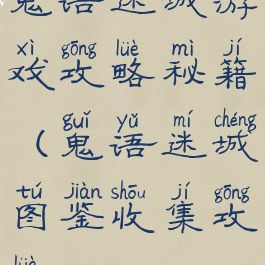 鬼语迷城游
xì gōng lüè mì jí
戏攻略秘籍
guǐ yǔ mí chéng
（鬼语迷城
tú jiàn shōu jí gōng
图鉴收集攻
lüè